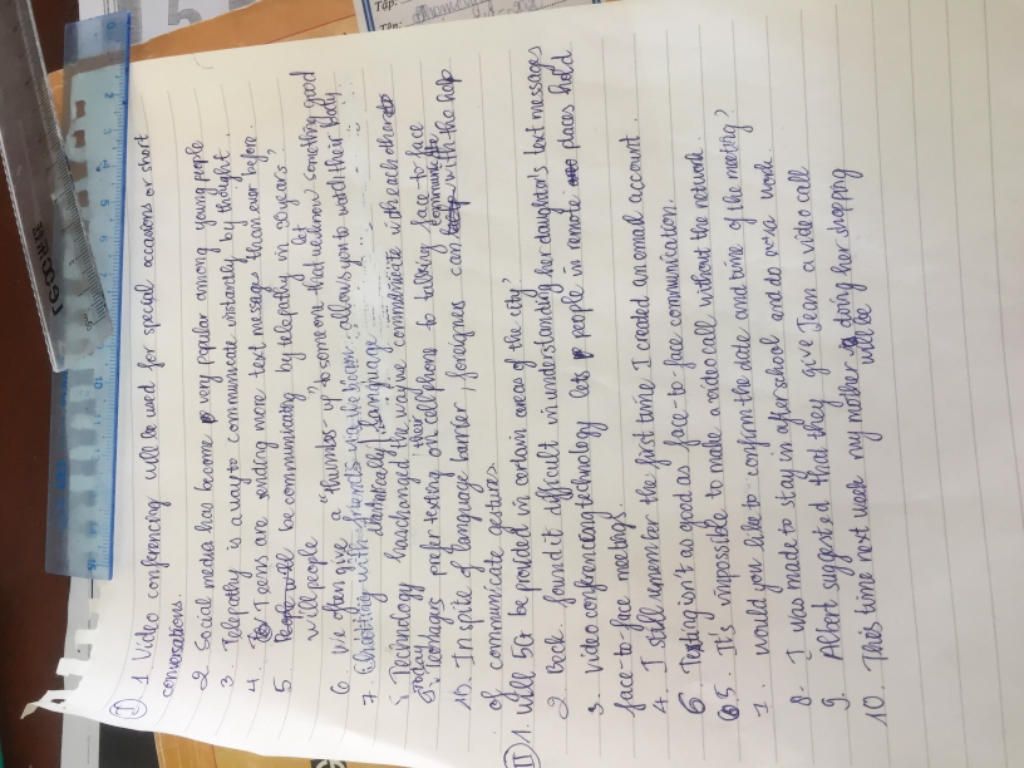 Tập:
Tên:
TG-OCEAN
(I) 1. Video conferencing will be used for special occasions or short
conversations.
2 Social media has become very popular among young people
3. Telepathy is a way to communicate instantly by thought.
4. Teens are sending more text messages than ever before.
5 People will be communicating by telepathy in 30 years'
will people let
6. We often give a "thumbs-up" to someone that we know something good
7. Chatting with friends via the
allows you to watch their body
language
Technology has changed the way we communicate with each other
today
Teenagers prefer texting on their cell phones to talking face-to-face
10. In spite of language barrier, foreignes can communicate with the help
of communicate gestures
(II) 1. Will 5G be provided in certain areas of the city?
2 Beck found it difficult in understanding her daughter's text messages
3. video conferencing technology lets people in remote places hold
face-to-face meetings.
4. I still remember the first time I created an email account.
6 Texting isn't as good as face-to face communication.
5. It's impossible to make a video call without the network.
7. would you like to confirm the date and time of the meeting?
8. I was made to stay in after school and do more work.
9. Albert suggested that they give Jean a video call
10. This time next week my mother doing her shopping
will be